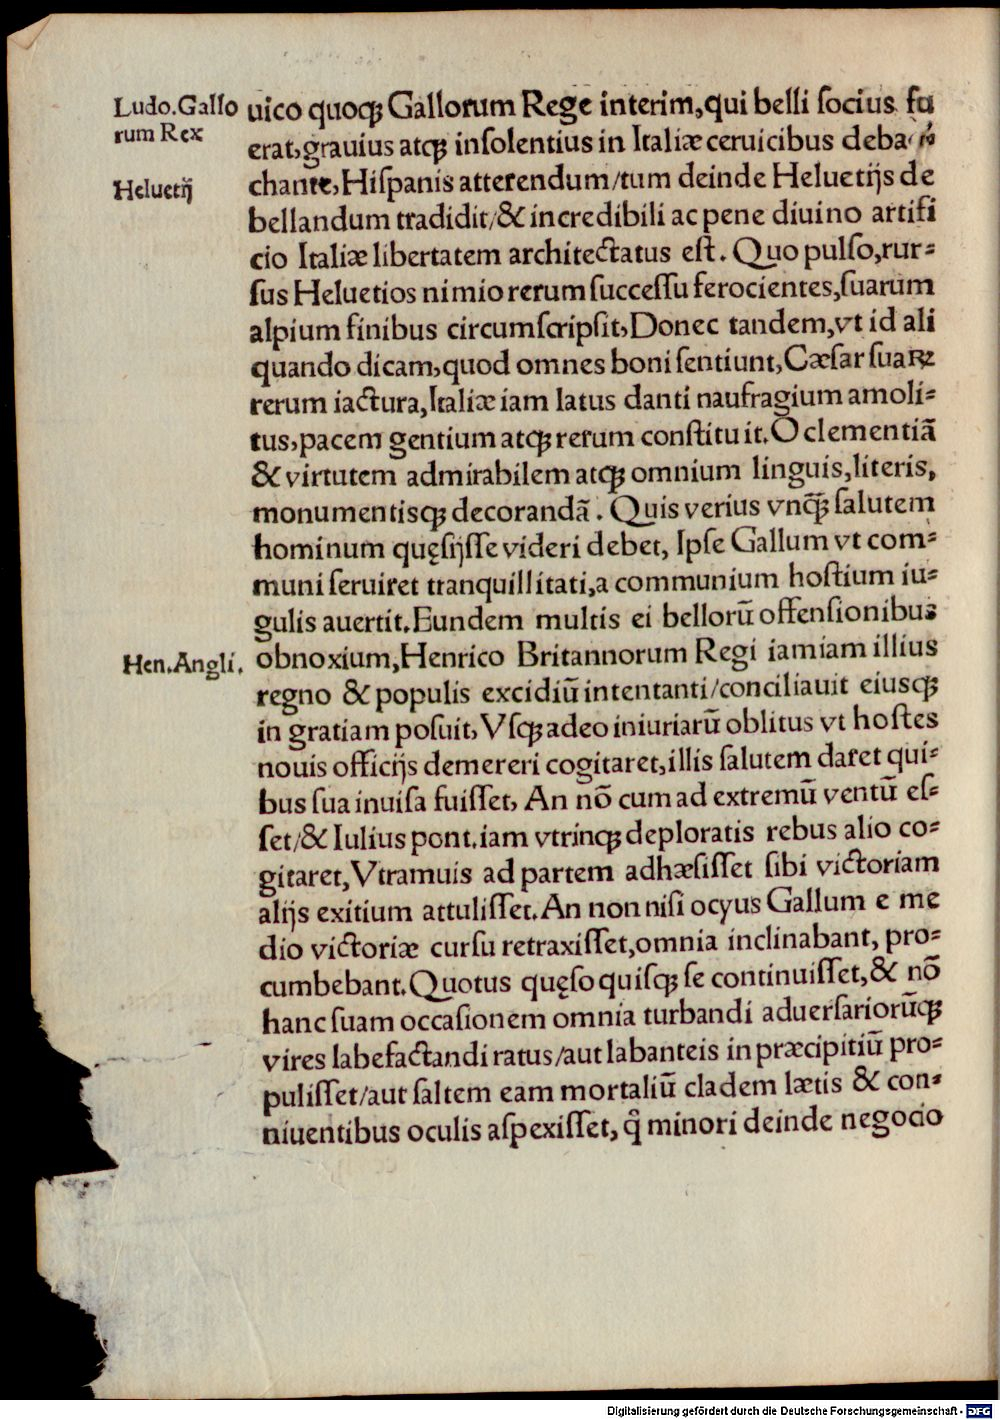 Ludo.Gallo
rum Rex
Heluetĳ
Hen.Angli.
uico quoqꝫ Gallorum Rege interim,qui belli socius fu
erat,grauius atqꝫ insolentius in Italiæ ceruicibus deba
chante,Hispanis atterendum/tum deinde Heluetĳs de
bellandum tradidit/& incredibili ac pene diuino artifi
cio Italiæ libertatem architectatus est. Quo pulso,rur⸗
sus Heluetios nimio rerum successu ferocientes,suarum
alpium finibus circumscripsit,Donec tandem,vt id ali
quando dicam,quod omnes boni sentiunt,Cæsar suaꝝ
rerum iactura,Italiæ iam latus danti naufragium amoli⸗
tus,pacem gentium atqꝫ rerum constituit.O clementiā
& virtutem admirabilem atqꝫ omnium linguis,literis,
monumentisqꝫ decorandā. Quis verius vnq̄ꝫ salutem
hominum quęsĳsse videri debet, Ipse Gallum vt com⸗
muni seruiret tranquillitati,a communium hostium iu⸗
gulis auertit.Eundem multis ei bellorū offensionibus
obnoxium,Henrico Britannorum Regi iamiam illius
regno & populis excidiū intentanti/conciliauit eiusqꝫ
in gratiam posuit, Vsqꝫ adeo iniuriarū oblitus vt hostes
nouis officĳs demereri cogitaret,illis salutem daret qui⸗
bus sua inuisa fuisset, An nō cum ad extremū ventū es⸗
set/& Iulius pont.iam vtrinqꝫ deploratis rebus alio co⸗
gitaret,Vtramuis ad partem adhæsisset sibi victoriam
alĳs exitium attulisset.An non nisi ocyus Gallum e me
dio victoriæ cursu retraxisset,omnia inclinabant, pro⸗
cumbebant.Quotus quęso quisqꝫ se continuisset,& nō
hanc suam occasionem omnia turbandi aduersariorūqꝫ
vires labefactandi ratus/aut labanteis in præcipitiū pro⸗
pulisset/aut saltem eam mortaliū cladem lætis & con⸗
niuentibus oculis aspexisset, q̄ minori deinde negocio
Digitalisierung gefördert durch die Deutsche Forschungsgemeinschaft - DFG